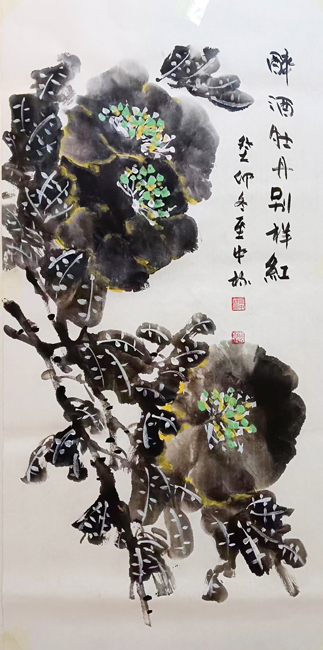 醉酒牡丹别样红
癸卯冬至中林